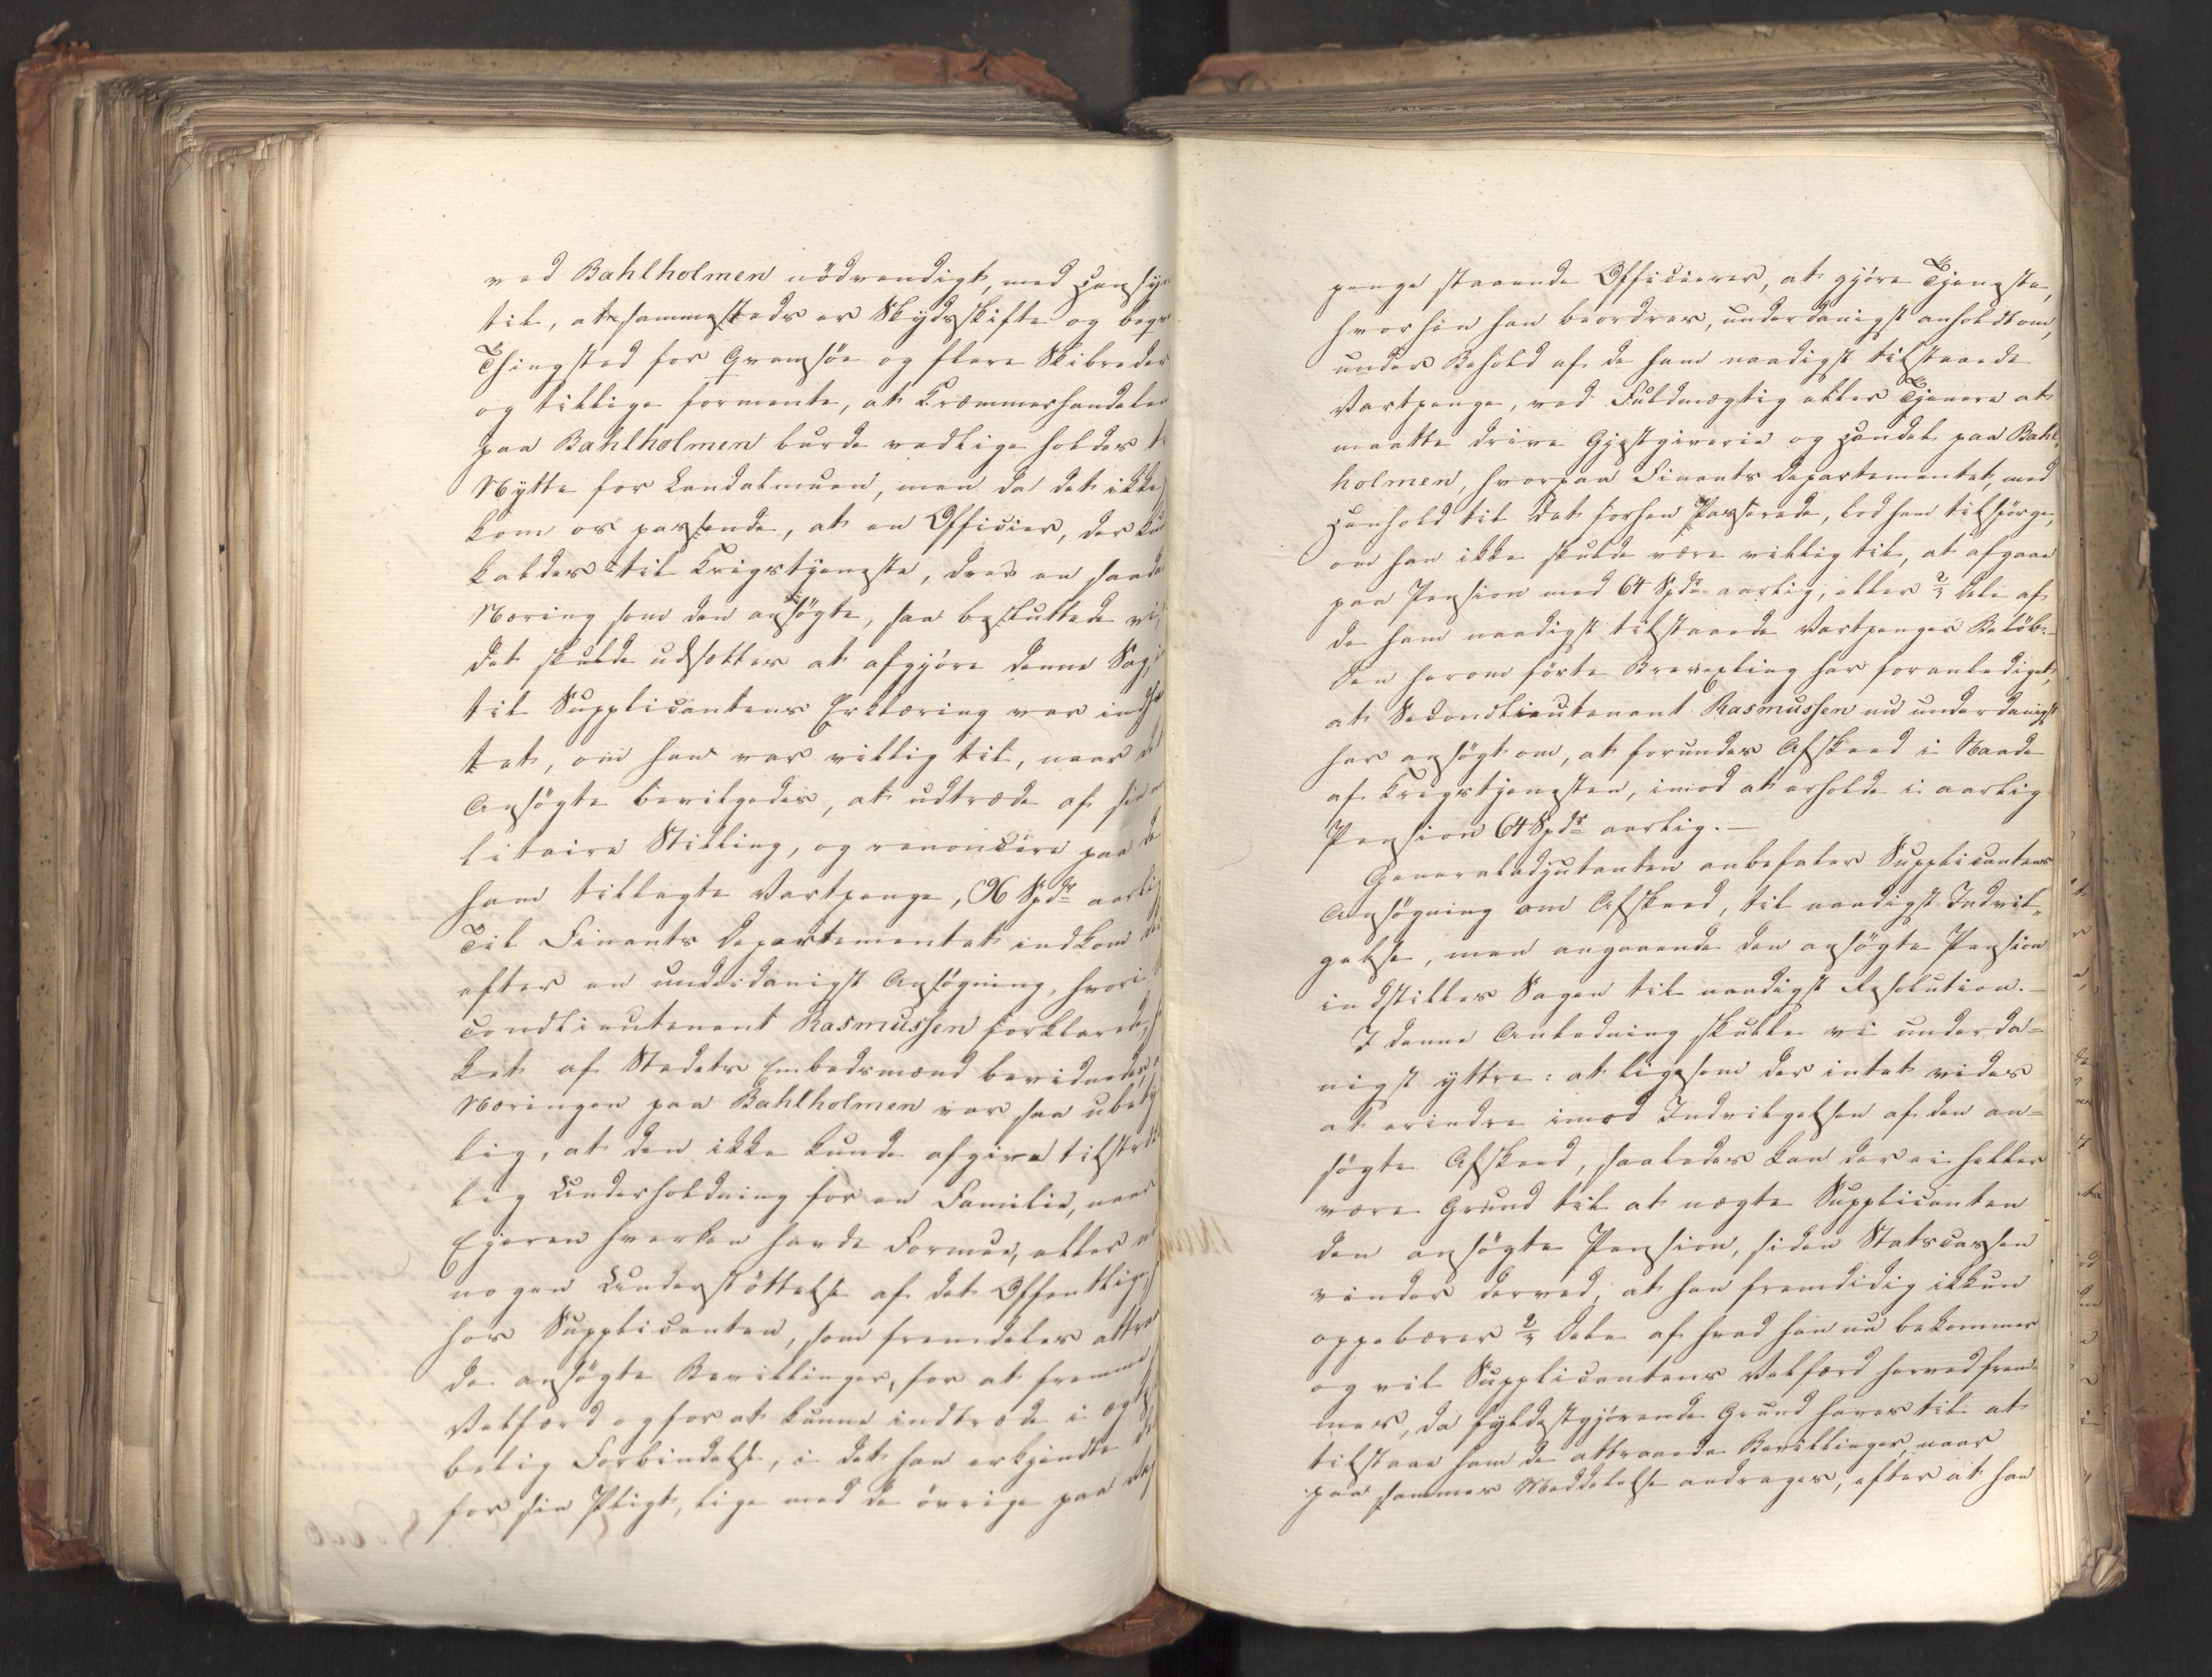 ved Bahlholmen nödvendigt, med Hensyn
til, at sammesteds er Skydsskifte og beqv
Thingsted for Qvamsøe og flere Skibreder
og tillige formente, at Kræmmerhandelen
paa Bahlholmen burde vedlige holdes t
Nytte for Landalmuen, men da det ikke
kom os passende, at en Officier, der kun
kaldes til Krigstjeneste, drev en saada
Næring som den ansøgte, saa besluttede vi,
det skulde udsættes at afgjøre denne Sag,
til Supplicantens Erklæring var indh
tet, om han var villig til, naar det
Ansøgte bevilgedes, at udtræde af sin m
litaire Stilling, og renoncere paa de
ham tillagte Vartpenge, 96 Spdr aarlig
Til Finants Departementet indkom de
efter en underdanigst Ansøgning, hvori
condlieutenant Rasmussen forklarede, h
ket af Stedets Embedsmænd bevidnedes, a
Næringen paa Bahlholmen var saa ubety
lig, at den ikke kunde afgive tilstræk
lig Underholdning for en Familie, naar
Ejeren hverken havde Formue, eller
nogen Understöttelse af det Offentlige
hos Supplicanten, som fremdeles attra
de ansøgte Bevillinger, for at fremme
Velfærd og for at kunne indtræde i ægte
belig Forbindelse, i det han erkjendte de
for sin Pligt, lige med de övrige paa Va
penge staaende Officierer, at gjöre Tjeneste,
hvorhen han beordres, underdanigst anholdt om,
under Behold af de ham naadigst tilstaaede
Vartpenge, ved Fuldmægtig eller Tjenere at
maatte drive Gjestgiverie og Handel paa Bahl¬
holmen, hvorpaa Finants Departementet, med
Henhold til det forhen Passerede, lod ham tilspörge,
om han ikke skulde være villig til, at afgaae
paa Pension med 64 Spdr aarlig, eller 2/3 Dele af
de ham naadigst tilstaaede Vartpenges Belöb.
Den herom førte Brevvexling har foranlediget,
at Secondlieutenant Rasmussen nu underdanigst
har ansøgt om, at forundes Afskeed i Naade
af Krigstjenesten, imod at erholde i aarlig
Pension 64 Spdr aarlig.—
Generaladjutanten anbefaler Supplicantens
Ansøgning om Afskeed, til naadigst Indvil¬
gelse, men angaaende den ansøgte Pension
indstilles Sagen til naadigst Resolution.—
I denne Anledning skulle vi underda=
nigst yttre: at ligesom der intet vides
at erindre imod Indvilgelsen af den an=
søgte Afskeed, saaledes kan der ei heller
være Grund til at nægte Supplicanten
den ansøgte Pension, siden Statscassen
vinder derved, at han fremdidig ikkun
oppebærer 2/3 Dele af hvad han nu bekommer
og vil Supplicantens Velfærd herved frem¬
mes, da fyldestgjörende Grund haves til at
tilstaae ham de attraaede Bevillinger, naar
paa sammes Meddelelse andrages, efter at han